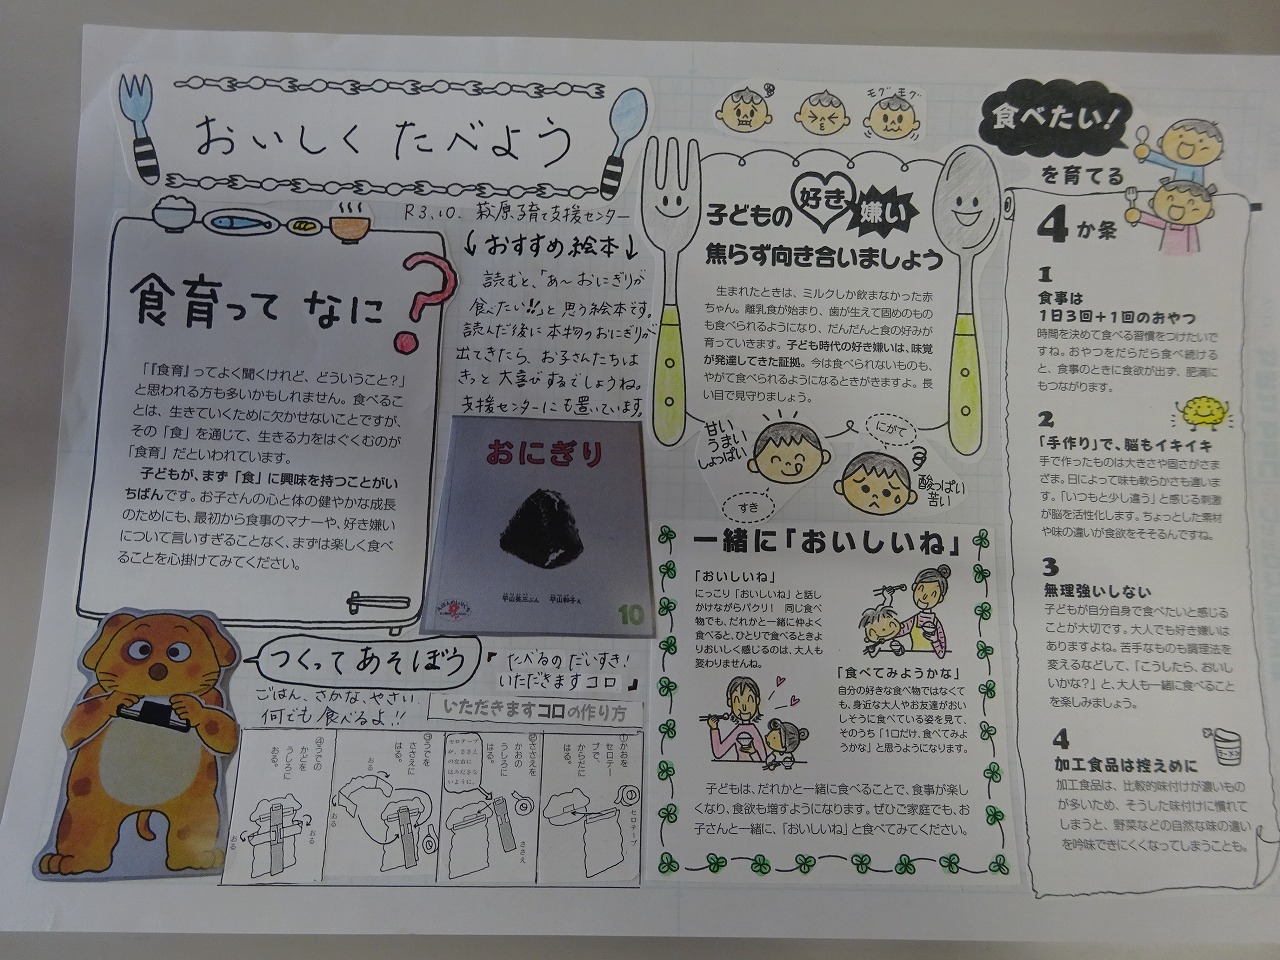 おいしく たべよう
R3.10. 萩原子育て支援センター
食育って なに?
「『食育』ってよく聞くけれど、どういうこと？」
と思われる方も多いかもしれません。食べるこ
とは、生きていくために欠かせないことですが、
その「食」を通じて、生きる力をはぐくむのが
「食育」だといわれています。
子どもが、まず「食」に興味を持つことがい
ちばんです。お子さんの心と体の健やかな成長
のためにも、最初から食事のマナーや、好き嫌い
について言いすぎることなく、まずは楽しく食べ
ることを心掛けてみてください。
↓おすすめ絵本↓
読むと、「あ〜おにぎりが
食べたい!!」と思う絵本です。
読んだ後に本物のおにぎりが
出てきたら、お子さんたちは
きっと大喜びするでしょうね。
支援センターにも置いています。
おにぎり
平山英三ぶん 平山和子え
10
つくってあそぼう
『たべるの だいすき!
いただきますコロ』
ごはん、さかな、やさい
何でも食べるよ!!
いただきますコロの作り方
①かおを
セロテー
プで、
からだに
はる。
セロテープ
②ささえを
かおの
うしろに
はる。
セロテープ
が、ささえ
の左右に
はみださな
いように。
ささえ
③うでを
ささえに
はる。
おる
④うでの
かどを
うしろに
おる。
おる
おる
モグモグ
子どもの好き嫌い
焦らず向き合いましょう
生まれたときは、ミルクしか飲まなかった赤
ちゃん。離乳食が始まり、歯が生えて固めのもの
も食べられるようになり、だんだんと食の好みが
育っていきます。子ども時代の好き嫌いは、味覚
が発達してきた証拠。今は食べられないものも、
やがて食べられるようになるときがきますよ。長
い目で見守りましょう。
甘い
うまい
しょっぱい
すき
にがて
酸っぱい
苦い
一緒に「おいしいね」
「おいしいね」
にっこり「おいしいね」と話し
かけながらパクリ！ 同じ食べ
物でも、だれかと一緒に仲よく
食べると、ひとりで食べるときよ
りおいしく感じるのは、大人も
変わりませんね。
「食べてみようかな」
自分の好きな食べ物ではなくて
も、身近な大人やお友達がおい
しそうに食べている姿を見て、
そのうち「1口だけ、食べてみよ
うかな」と思うようになります。
子どもは、だれかと一緒に食べることで、食事が楽し
くなり、食欲も増すようになります。ぜひご家庭でも、お
子さんと一緒に、「おいしいね」と食べてみてください。
食べたい!
を育てる
4か条
1
食事は
1日3回＋1回のおやつ
時間を決めて食べる習慣をつけたいで
すね。おやつをだらだら食べ続ける
と、食事のときに食欲が出ず、肥満に
もつながります。
2
「手作り」で、脳もイキイキ
手で作ったものは大きさや固さがさま
ざま。日によって味も軟らかさも違いま
す。「いつもと少し違う」と感じる刺激
が脳を活性化します。ちょっとした素材
や味の違いが食欲をそそるんですね。
3
無理強いしない
子どもが自分自身で食べたいと感じる
ことが大切です。大人でも好き嫌いは
ありますよね。苦手なものも調理法を
変えるなどして、「こうしたら、おいし
いかな？」と、大人も一緒に食べること
を楽しみましょう。
4
加工食品は控えめに
ラーメン
加工食品は、比較的味付けが濃いもの
が多いため、そうした味付けに慣れて
しまうと、野菜などの自然な味の違い
を吟味できにくくなってしまうことも。